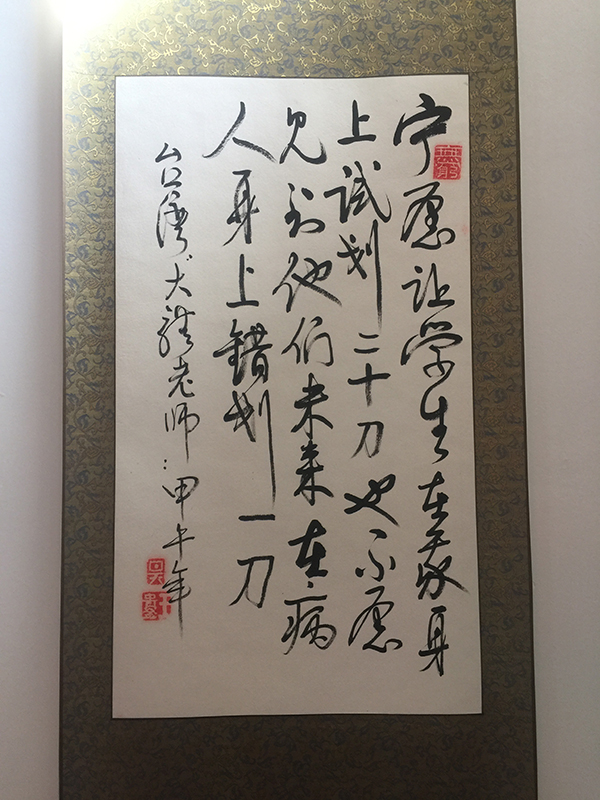 宁愿让学生在我身
上試划二十刀也不愿
见到他们未来在病
人身上錯划一刀
台湾大體老师:甲午年